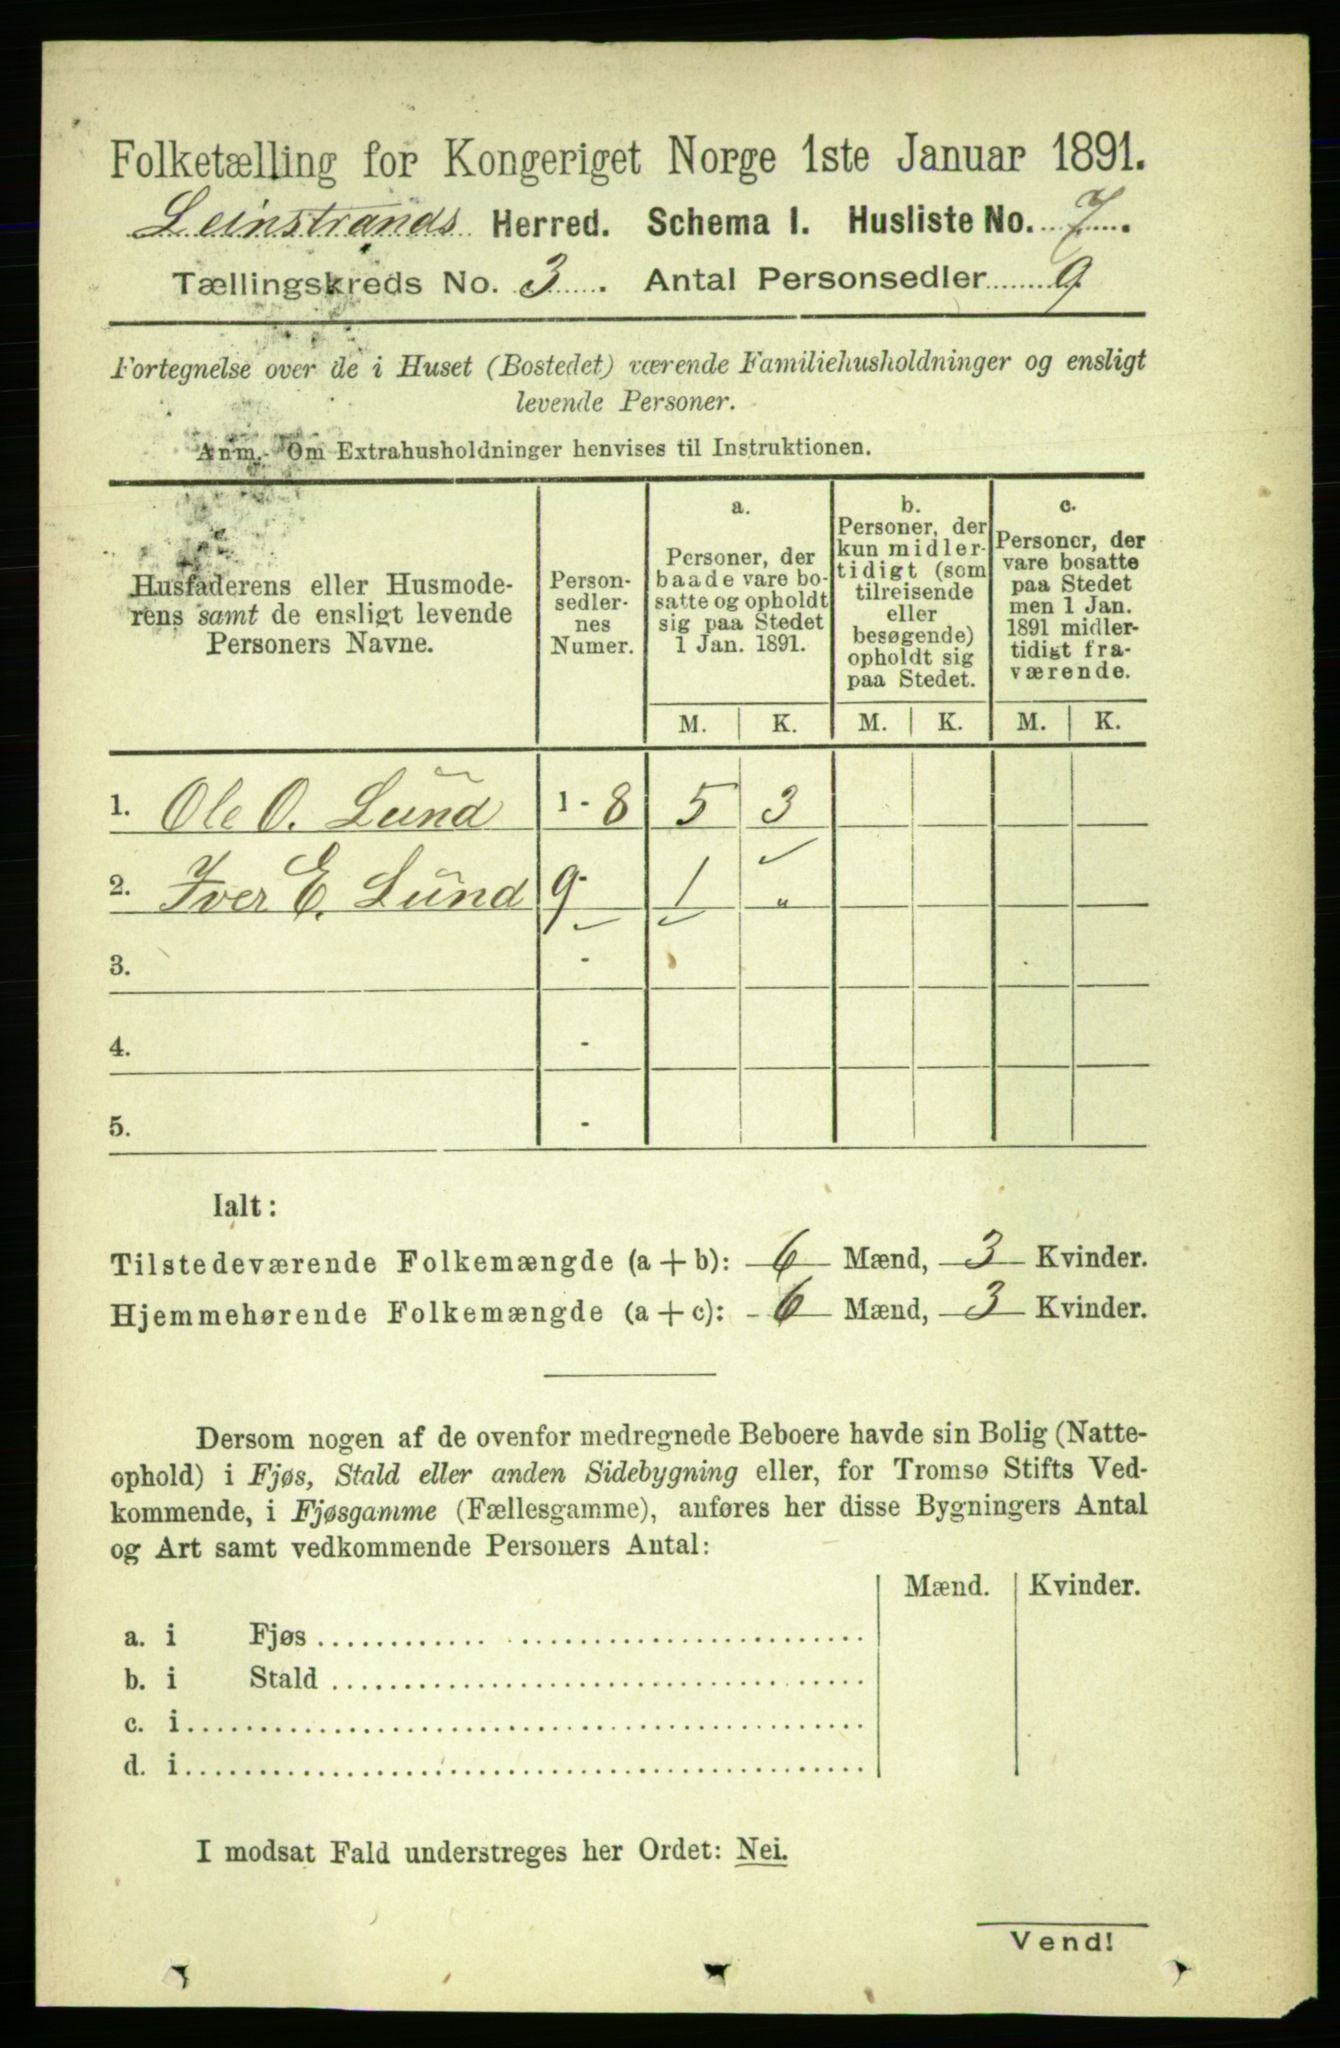 Folketælling for Kongeriget Norge 1ste Januar 1891.
Leinstrands Herred. Schema I. Husliste No. 7.
Tællingskreds No. 3. Antal Personsedler 9
Fortegnelse over de i Huset (Bostedet) værende Familiehusholdninger og ensligt
levende Personer.
Anm. Om Extrahusholdninger henvises til Instruktionen.
Husfaderens eller Husmode-
rens samt de ensligt levende
Personers Navne.
Person-
sedler-
nes
Numer.
a.
Personer, der
baade vare bo-
satte og opholdt
sig paa Stedet
1 Jan. 1891.
b.
Personer, der
kun midler-
tidigt (som
tilreisende
eller
besøgende)
opholdt sig
paa Stedet.
c.
Personer, der
vare bosatte
paa Stedet
men 1 Jan.
1891 midler-
tidigt fra-
værende.
M. K. M. K. M. K.
1. Ole O. Lund 1 - 8 5 3
2. Iver E. Lund 9 - 1 "
3. -
4. -
5. -
Ialt:
Tilstedeværende Folkemængde (a + b): 6 Mænd, 3 Kvinder.
Hjemmehørende Folkemængde (a + c): 6 Mænd, 3 Kvinder.
Dersom nogen af de ovenfor medregnede Beboere havde sin Bolig (Natte-
ophold) i Fjøs, Stald eller anden Sidebygning eller, for Tromsø Stifts Ved-
kommende, i Fjøsgamme (Fællesgamme), anføres her disse Bygningers Antal
og Art samt vedkommende Personers Antal:
Mænd. Kvinder.
a. i Fjøs
b. i Stald
c. i
d. i
I modsat Fald understreges her Ordet: Nei.
Vend!